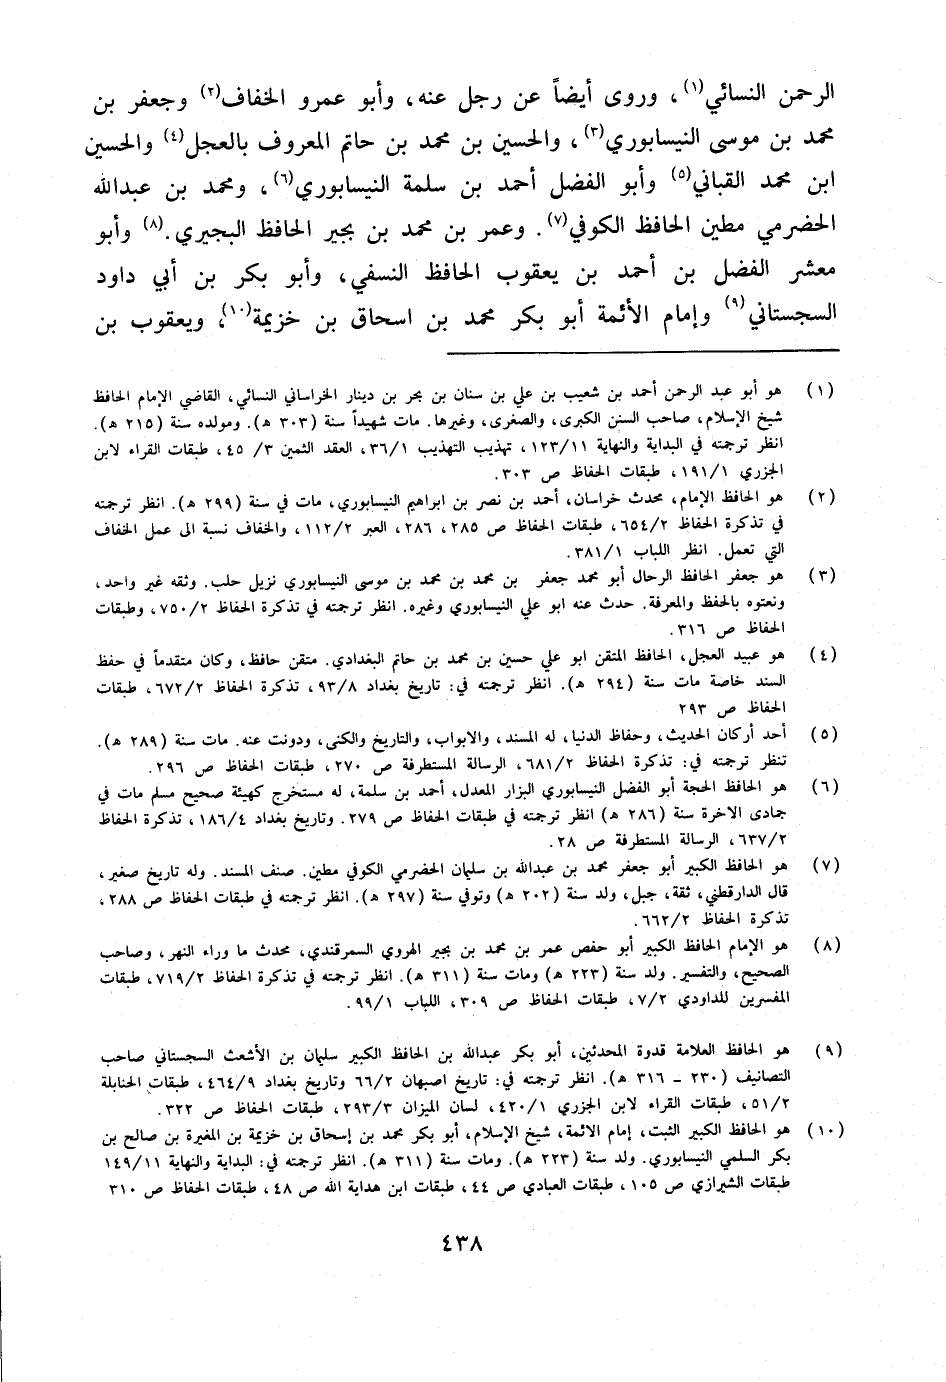 الرحمن النسائي(١)، وروى أيضاً عن رجل عنه، وأبو عمرو الخفاف(٢) وجعفر بن
محمد بن موسى النيسابوري(٣)، والحسين بن محمد بن حاتم المعروف بالعجل(٤) والحسين
ابن محمد القباني(٥) وأبو الفضل أحمد بن سلمة النيسابوري(٦)، ومحمد بن عبدالله
الحضرمي مطين الحافظ الكوفي(٧). وعمر بن محمد بن بجير الحافظ البجيري.(٨) وأبو
معشر الفضل بن أحمد بن يعقوب الحافظ النسفي، وأبو بكر بن أبي داود
السجستاني(٩) وإمام الأئمة أبو بكر محمد بن اسحاق بن خزيمة(١٠)، ويعقوب بن
(١) هو أبو عبد الرحمن أحمد بن شعيب بن علي بن سنان بن بحر بن دينار الخراساني النسائي، القاضي الإمام الحافظ
شيخ الإسلام، صاحب السنن الكبرى، والصغرى، وغيرها. مات شهيداً سنة (٣٠٣ هـ). ومولده سنة (٢١٥ هـ).
انظر ترجمته في البداية والنهاية ١٢٣/١١، تهذيب التهذيب ٣٦/١، العقد الثمين ٣/ ٤٥، طبقات القراء لابن
الجزري ١٩١/١، طبقات الحفاظ ص ٣٠٣.
(٢) هو الحافظ الإمام، محدث خراسان، أحمد بن نصر بن ابراهيم النيسابوري، مات في سنة (٢٩٩ هـ). انظر ترجمته
في تذكرة الحفاظ ٦٥٤/٢، طبقات الحفاظ ص ٢٨٥، ٢٨٦، العبر ١١٢/٢، والخفاف نسبة الى عمل الخفاف
التي تعمل. انظر اللباب ٣٨١/١.
(٣) هو جعفر الحافظ الرحال أبو محمد جعفر بن محمد بن محمد بن موسى النيسابوري نزيل حلب. وثقه غير واحد،
ونعتوه بالحفظ والمعرفة. حدث عنه ابو علي النيسابوري وغيره. انظر ترجمته في تذكرة الحفاظ ٧٥٠/٢، وطبقات
الحفاظ ص ٣١٦.
(٤) هو عبيد العجل، الحافظ المتقن ابو علي حسين بن محمد بن حاتم البغدادي. متقن حافظ، وكان متقدماً في حفظ
السند خاصة مات سنة (٢٩٤ هـ). انظر ترجمته في: تاريخ بغداد ٩٣/٨، تذكرة الحفاظ ٦٧٢/٢، طبقات
الحفاظ ص ٢٩٣
(٥) أحد أركان الحديث، وحفاظ الدنيا، له المسند، والابواب، والتاريخ والكنى، ودونت عنه. مات سنة (٢٨٩ هـ).
تنظر ترجمته في: تذكرة الحفاظ ٦٨١/٢، الرسالة المستطرفة ص ٢٧٠، طبقات الحفاظ ص ٢٩٦.
(٦) هو الحافظ الحجة أبو الفضل النيسابوري البزار المعدل، أحمد بن سلمة، له مستخرج كهيئة صحيح مسلم مات في
جمادى الاخرة سنة (٢٨٦ هـ) انظر ترجمته في طبقات الحفاظ ص ٢٧٩. وتاريخ بغداد ١٨٦/٤، تذكرة الحفاظ
٦٣٧/٢، الرسالة المستطرفة ص ٢٨.
(٧) هو الحافظ الكبير أبو جعفر محمد بن عبدالله بن سليمان الحضرمي الكوفي مطين. صنف المسند. وله تاريخ صغير،
قال الدارقطني، ثقة، جبل، ولد سنة (٢٠٢ هـ) وتوفي سنة (٢٩٧ هـ). انظر ترجمته في طبقات الحفاظ ص ٢٨٨،
تذكرة الحفاظ ٦٦٢/٢.
(٨) هو الإمام الحافظ الكبير أبو حفص عمر بن محمد بن بجير الهروي السمرقندي، محدث ما وراء النهر، وصاحب
الصحيح، والتفسير. ولد سنة (٢٢٣ هـ) ومات سنة (٣١١ هـ). انظر ترجمته في تذكرة الحفاظ ٧١٩/٢، طبقات
المفسرين للداودي ٧/٢، طبقات الحفاظ ص ٣٠٩، اللباب ٩٩/١.
(٩) هو الحافظ العلامة قدوة المحدثين، أبو بكر عبدالله بن الحافظ الكبير سليمان بن الأشعث السجستاني صاحب
التصانيف (٢٣٠ - ٣١٦ هـ). انظر ترجمته في: تاريخ اصبهان ٦٦/٢ وتاريخ بغداد ٤٦٤/٩، طبقات الحنابلة
٥١/٢، طبقات القراء لابن الجزري ٤٢٠/١، لسان الميزان ٢٩٣/٣، طبقات الحفاظ ص ٣٢٢.
(١٠) هو الحافظ الكبير الثبت، إمام الائمة، شيخ الإسلام، أبو بكر محمد بن إسحاق بن خزيمة بن المغيرة بن صالح بن
بكر السلمي النيسابوري. ولد سنة (٢٢٣ هـ). ومات سنة (٣١١ هـ). انظر ترجمته في: البداية والنهاية ١٤٩/١١
طبقات الشيرازي ص ١٠٥، طبقات العبادي ص ٤٤، طبقات ابن هداية الله ص ٤٨، طبقات الحفاظ ص ٣١٠
٤٣٨